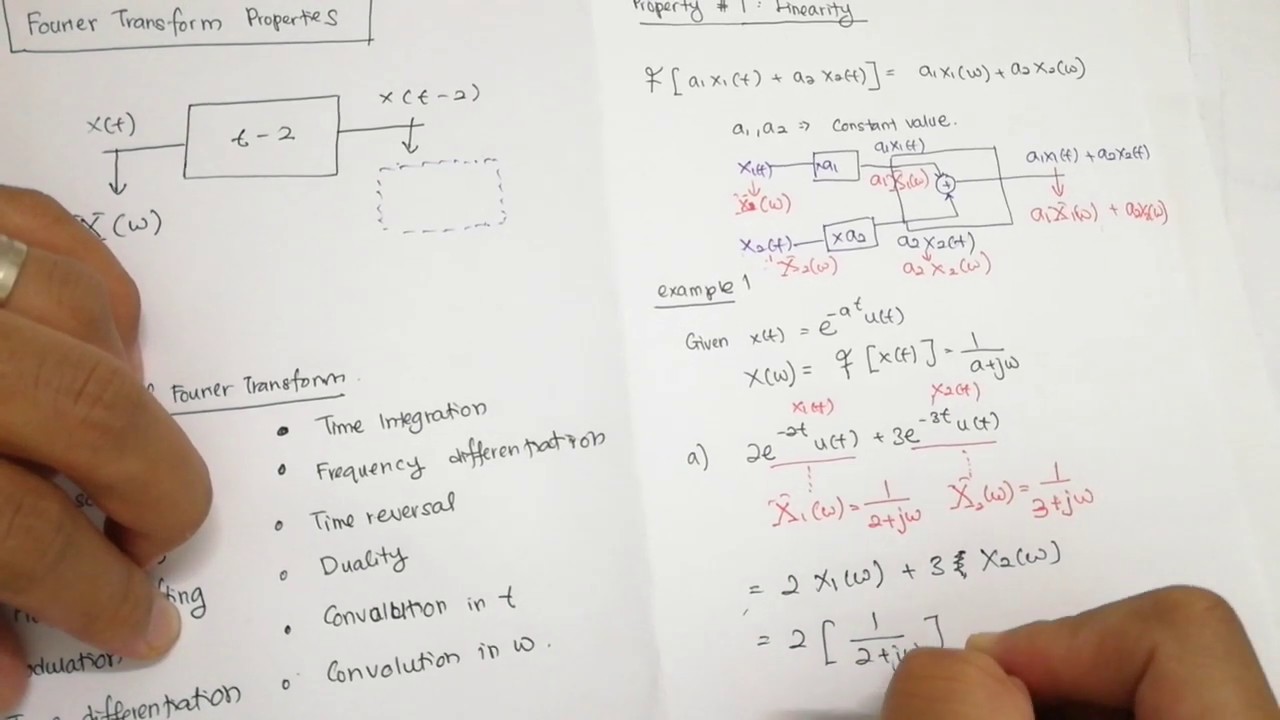 Fourier Transform Properties
x(t)
t - 2
x(t-2)
X(ω)
Fourier Transform.
• Time Integration
• Frequency differentiation
• Time reversal
• Duality
• Convalution in t
• Convolution in ω.
differentiation
Property # 1: Linearity
F[a₁x₁(t) + a₂x₂(t)] = a₁x₁(ω) + a₂x₂(ω)
a₁, a₂ ⇒ Constant value.
x₁(t)
xa₁
a₁x₁(t)
a₁x₁(t) + a₂x₂(t)
a₁X₁(ω)
+
a₁X₁(ω) + a₂x₂(ω)
x₂(t)
xa₂
a₂x₂(t)
X₂(ω)
a₂x₂(ω)
example 1
Given x(t) = e^-at u(t)
x(ω) = F[x(t)] = 1/(a+jω)
x₁(t) x₂(t)
a) 2e^-2t u(t) + 3e^-3t u(t)
X₁(ω) = 1/(2+jω) X₂(ω) = 1/(3+jω)
= 2 x₁(ω) + 3 x₂(ω)
= 2 [1/(2+jω)]